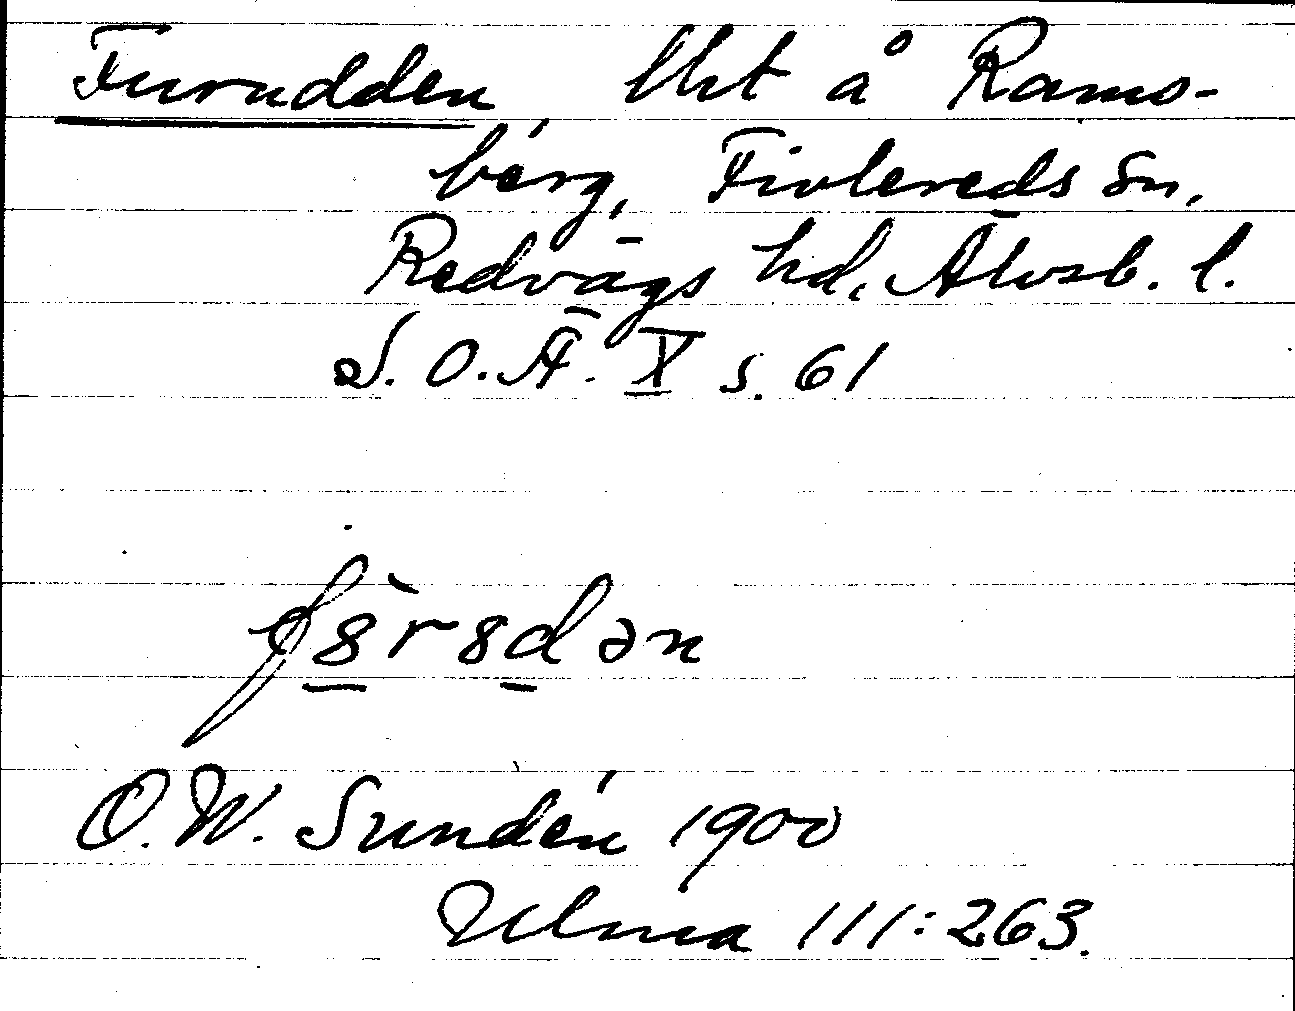 Furudden, lht å Rams-
berg, Fivlereds sn,
Redvägs hd, Älvsb. l.
S.O.Ä. X s. 61
fȣ̱̀rȣḏən
O.W. Sundén 1900
Ulma 111:263.